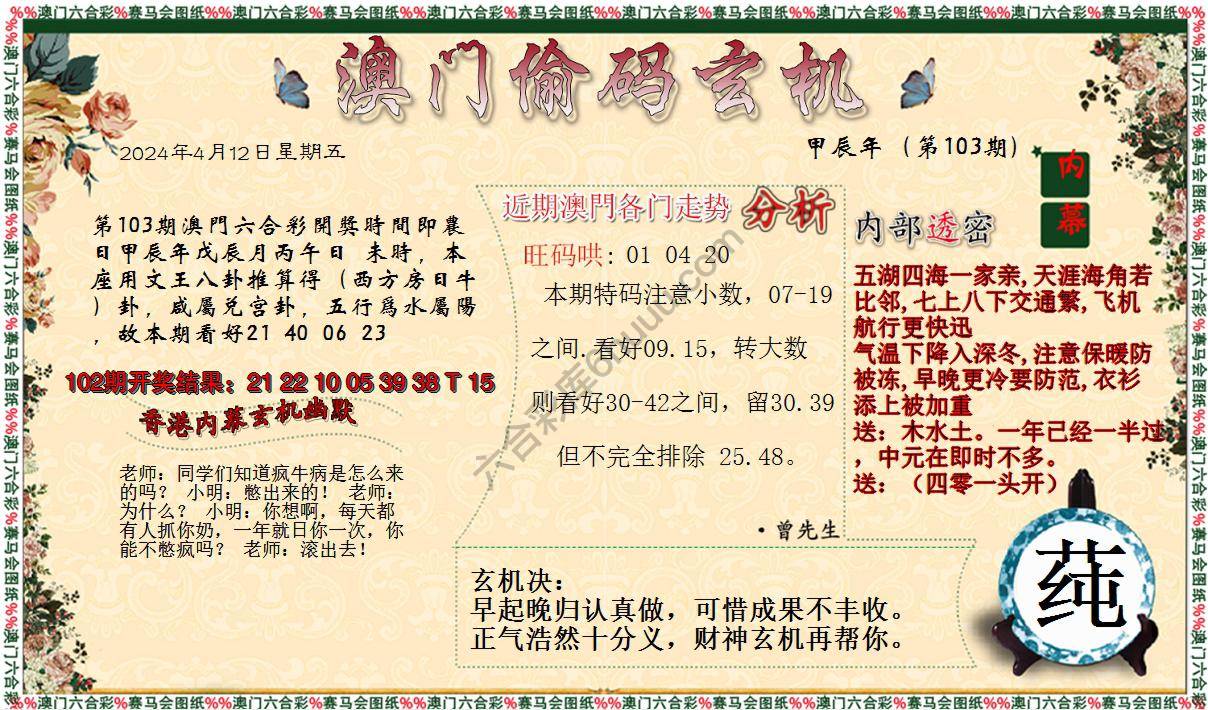 %%澳门六合彩%赛马会图纸%%澳门六合彩%赛马会图纸%%澳门六合彩%赛马会图纸%%澳门六合彩%赛马会图纸%%澳门六合彩%赛马会图纸%%澳门六合彩%赛马会图纸%%
澳门偷码玄机
2024年4月12日星期五
甲辰年（第103期）
内
幕
第103期澳門六合彩開獎時間即農
日甲辰年戊辰月丙午日 未時，本
座用文王八卦推算得（西方房日牛
）卦，咸屬兑宫卦，五行爲水屬陽
，故本期看好21 40 06 23
102期开奖结果：21 22 10 05 39 38 T 15
香港内幕玄机幽默
老师：同学们知道疯牛病是怎么来
的吗？ 小明：憋出来的！ 老师：
为什么？ 小明：你想啊，每天都
有人抓你奶，一年就日你一次，你
能不憋疯吗？ 老师：滚出去！
近期澳門各门走势 分析
旺码哄: 01 04 20
本期特码注意小数，07-19
之间.看好09.15，转大数
则看好30-42之间，留30.39
但不完全排除 25.48。
·曾先生
内部透密
五湖四海一家亲,天涯海角若
比邻,七上八下交通繁,飞机
航行更快迅
气温下降入深冬,注意保暖防
被冻,早晚更冷要防范,衣衫
添上被加重
送：木水土。一年已经一半过
，中元在即时不多。
送：（四零一头开）
玄机决：
早起晚归认真做，可惜成果不丰收。
正气浩然十分义，财神玄机再帮你。
莼
%%澳门六合彩%赛马会图纸%%澳门六合彩%赛马会图纸%%澳门六合彩%赛马会图纸%%澳门六合彩%赛马会图纸%%澳门六合彩%赛马会图纸%%澳门六合彩%赛马会图纸%%